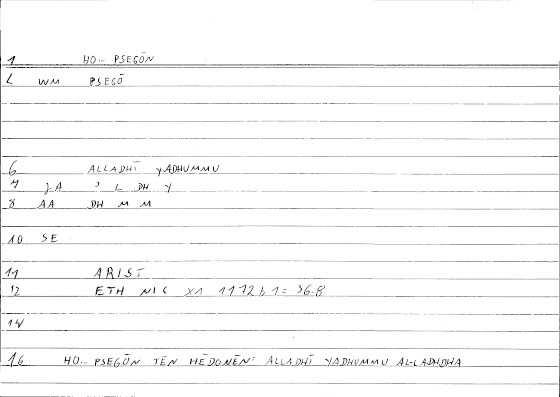 1 HO.. PSEGŌN
L WM PSEGŌ
6 ALLADHĪ YADHUMMU
7 JA ʾ L DH Y
8 AA DH M M
10 SE
11 ARIST
12 ETH NIC X1 1172 b 1 = 36.8
14
16 HO.. PSEGŌN TĒN HĒDONĒN: ALLADHĪ YADHUMMU AL-LADHDHA